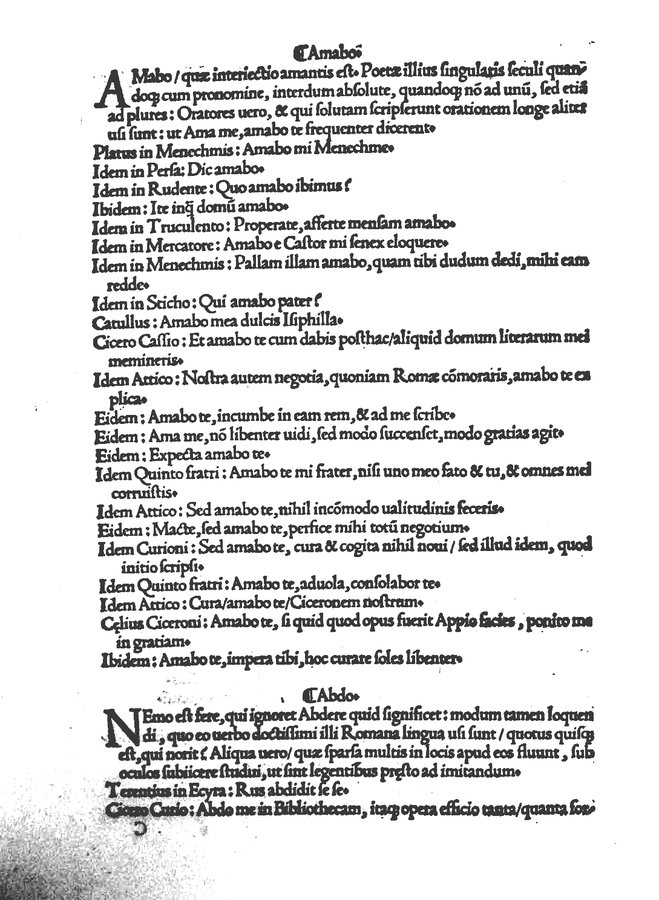 ¶Amabo
AMabo / quæ interiectio amantis est. Poetæ illius singularis seculi quan-
doq; cum pronomine, interdum absolute, quandoq; nō ad unū, sed etiā
ad plures: Oratores uero, & qui solutam scripserunt orationem longe aliter
usi sunt: ut Ama me, amabo te frequenter dicerent.
Platus in Menechmis: Amabo mi Menechme.
Idem in Persa: Dic amabo.
Idem in Rudente: Quo amabo ibimus?
Ibidem: Ite inq̃ domū amabo.
Idem in Truculento: Properate, afferte mensam amabo.
Idem in Mercatore: Amabo e Castor mi senex eloquere.
Idem in Menechmis: Pallam illam amabo, quam tibi dudum dedi, mihi eam
redde.
Idem in Sticho: Qui amabo pater?
Catullus: Amabo mea dulcis Isiphilla.
Cicero Cassio: Et amabo te cum dabis posthac/aliquid domum literarum mei
memineris.
Idem Attico: Nostra autem negotia, quoniam Romæ cōmoraris, amabo te ex
plica.
Eidem: Amabo te, incumbe in eam rem, & ad me scribe.
Eidem: Ama me, nō libenter uidi, sed modo succenset, modo gratias agit.
Eidem: Expecta amabo te.
Idem Quinto fratri: Amabo te mi frater, nisi uno meo fato & tu, & omnes mei
corruistis.
Idem Attico: Sed amabo te, nihil incōmodo ualitudinis feceris.
Eidem: Macte, sed amabo te, perfice mihi totū negotium.
Idem Curioni: Sed amabo te, cura & cogita nihil noui / sed illud idem, quod
initio scripsi.
Idem Quinto fratri: Amabo te, aduola, consolabor te.
Idem Attico: Cura/amabo te/Ciceronem nostrum.
Cęlius Ciceroni: Amabo te, si quid quod opus fuerit Appio facies, ponito me
in gratiam.
Ibidem: Amabo te, impera tibi, hoc curare soles libenter.
¶Abdo.
NEmo est fere, qui ignoret Abdere quid significet: modum tamen loquen
di, quo eo uerbo doctissimi illi Romana lingua usi sunt / quotus quisq;
est, qui norit? Aliqua uero/ quæ sparsa multis in locis apud eos fluunt, sub
oculos subiicere studui, ut sint legentibus pręsto ad imitandum.
Terentius in Ecyra: Rus abdidit se se.
Cicero Curio: Abdo me in Bibliothecam, itaq; opera efficio tanta/quanta for-